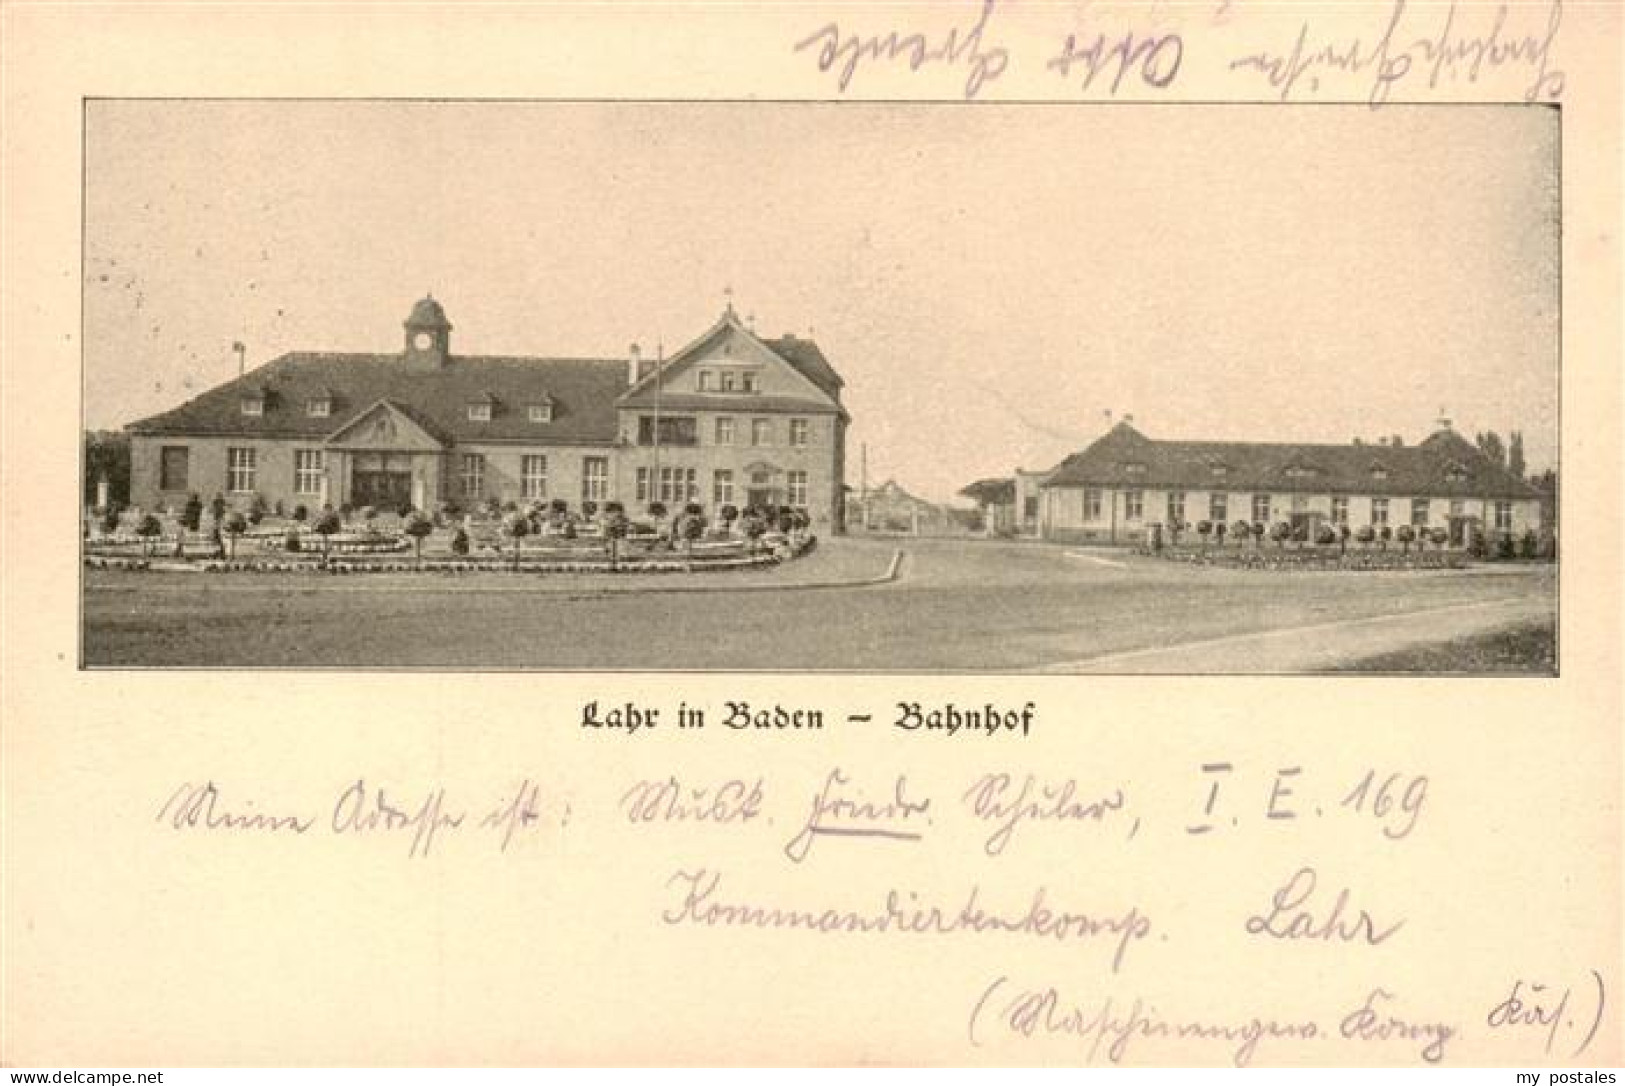 Herzliche Grüße
Lahr in Baden — Bahnhof
Meine Adresse ist: Musk. Friedr. Schüler, I. E. 169
Kommandiertenkomp. Lahr
(Maschinengew. Komp. Käs.)
delcampe.net user: mercurius-shop
my postales